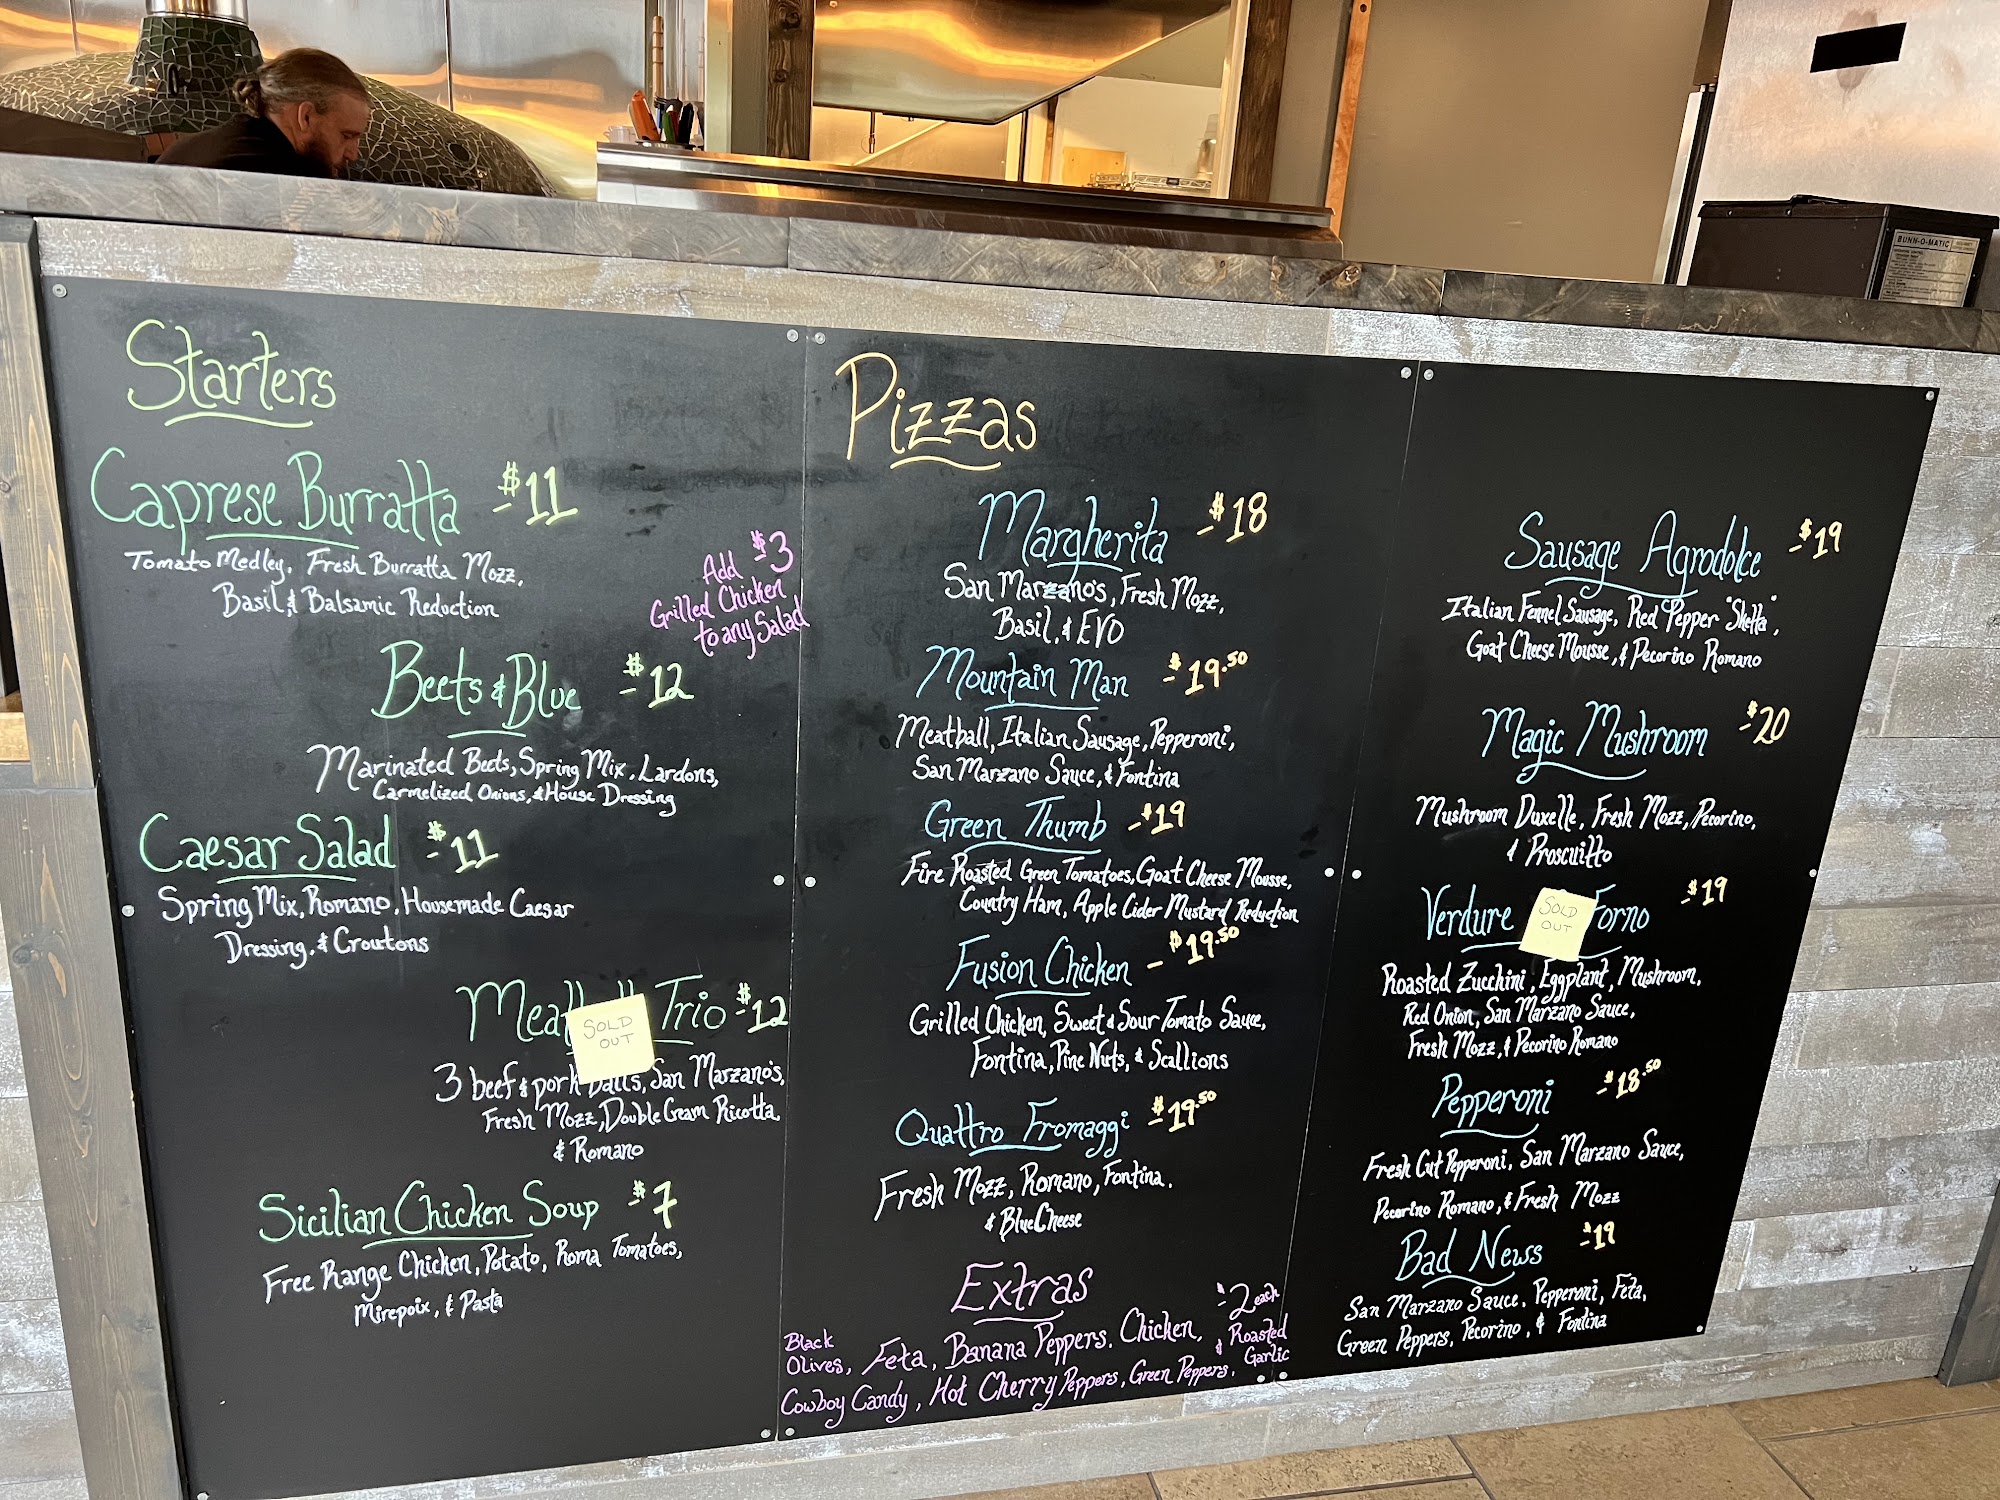 BUNN-O-MATIC
Starters
Caprese Burratta - $11
Tomato Medley, Fresh Burratta Mozz,
Basil, & Balsamic Reduction
Add - $3
Grilled Chicken
to any Salad
Beets & Blue - $12
Marinated Beets, Spring Mix, Lardons,
Carmelized Onions, & House Dressing
Caesar Salad - $11
Spring Mix, Romano, Housemade Caesar
Dressing, & Croutons
Trio - $12
SOLD
OUT
3 beef & pork balls, San Marzano's,
Fresh Mozz, Double Cream Ricotta,
& Romano
Sicilian Chicken Soup - $7
Free Range Chicken, Potato, Roma Tomatoes,
Mirepoix, & Pasta
Pizzas
Margherita - $18
San Marzano's, Fresh Mozz,
Basil, & EVO
Mountain Man - $19.50
Meatball, Italian Sausage, Pepperoni,
San Marzano Sauce, & Fontina
Green Thumb - $19
Fire Roasted Green Tomatoes, Goat Cheese Mousse,
Country Ham, Apple Cider Mustard Reduction
Fusion Chicken - $19.50
Grilled Chicken, Sweet & Sour Tomato Sauce,
Fontina, Pine Nuts, & Scallions
Quattro Fromaggi - $19.50
Fresh Mozz, Romano, Fontina,
& Blue Cheese
Extras - $2 each
Black Olives, Feta, Banana Peppers, Chicken, & Roasted Garlic
Cowboy Candy, Hot Cherry Peppers, Green Peppers,
Sausage Agrodolce - $19
Italian Fennel Sausage, Red Pepper "Shetta",
Goat Cheese Mousse, & Pecorino Romano
Magic Mushroom - $20
Mushroom Duxelle, Fresh Mozz, Pecorino,
& Proscuitto
Verdure Forno - $19
SOLD
OUT
Roasted Zucchini, Eggplant, Mushroom,
Red Onion, San Marzano Sauce,
Fresh Mozz, & Pecorino Romano
Pepperoni - $18.50
Fresh Cut Pepperoni, San Marzano Sauce,
Pecorino Romano, & Fresh Mozz
Bad News - $19
San Marzano Sauce, Pepperoni, Feta,
Green Peppers, Pecorino, & Fontina